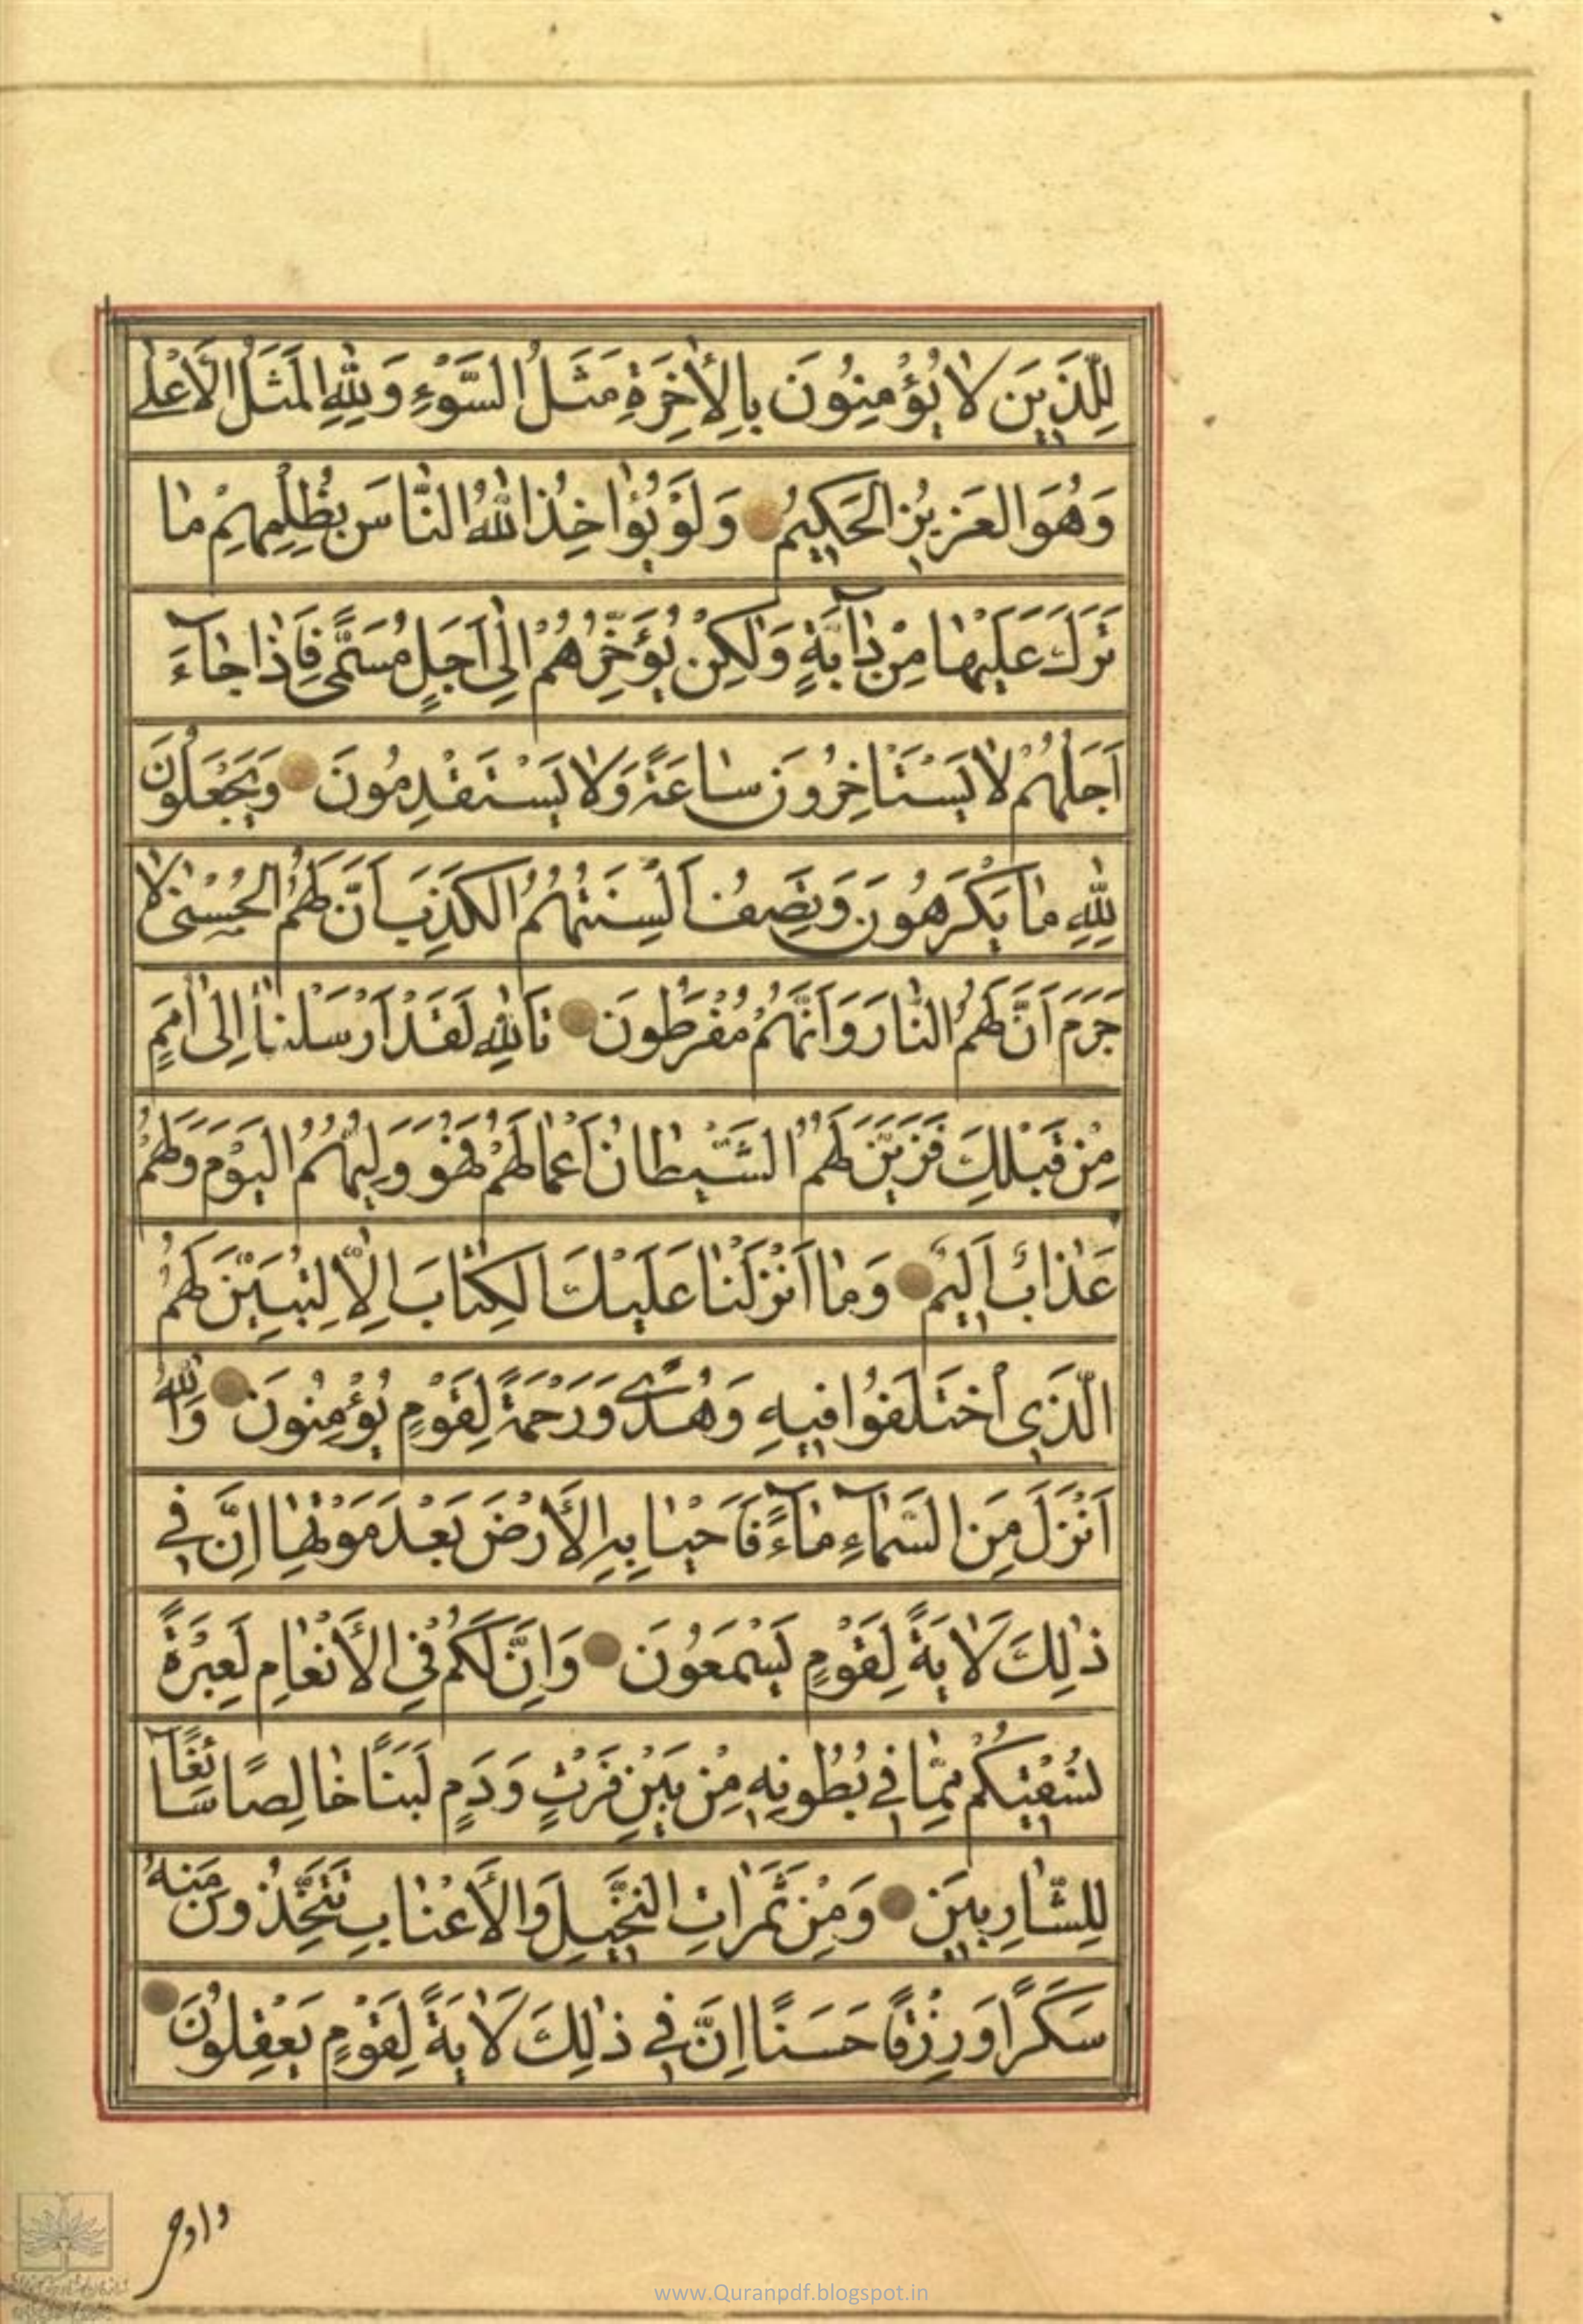 لِلَّذِينَ لَا يُؤْمِنُونَ بِالْأَخِرَةِ مَثَلُ السَّوْءِ وَلِلَّهِ الْمَثَلُ الْأَعْلَى
وَهُوَ الْعَزِيزُ الْحَكِيمُ وَلَوْ يُؤَاخِذُ اللهُ النَّاسَ بِظُلْمِهِمْ مَا
تَرَكَ عَلَيْهَا مِنْ دَآبَّةٍ وَلٰكِنْ يُؤَخِّرُهُمْ اِلٰى اَجَلٍ مُسَمًّى فَاِذَا جَآءَ
اَجَلُهُمْ لَا يَسْتَاخِرُونَ سَاعَةً وَلَا يَسْتَقْدِمُونَ وَيَجْعَلُونَ
لِلّٰهِ مَا يَكْرَهُونَ وَتَصِفُ اَلْسِنَتُهُمُ الْكَذِبَ اَنَّ لَهُمُ الْحُسْنٰى لَا
جَرَمَ اَنَّ لَهُمُ النَّارَ وَاَنَّهُمْ مُفْرَطُونَ تَاللّٰهِ لَقَدْ اَرْسَلْنَا اِلٰى اُمَمٍ
مِنْ قَبْلِكَ فَزَيَّنَ لَهُمُ الشَّيْطَانُ اَعْمَالَهُمْ فَهُوَ وَلِيُّهُمُ الْيَوْمَ وَلَهُمْ
عَذَابٌ اَلِيمٌ وَمَا اَنْزَلْنَا عَلَيْكَ الْكِتَابَ اِلَّا لِتُبَيِّنَ لَهُمُ
الَّذِي اخْتَلَفُوا فِيهِ وَهُدًى وَرَحْمَةً لِقَوْمٍ يُؤْمِنُونَ وَاللّٰهُ
اَنْزَلَ مِنَ السَّمَآءِ مَآءً فَاَحْيَا بِهِ الْأَرْضَ بَعْدَ مَوْتِهَا اِنَّ فِي
ذٰلِكَ لَاٰيَةً لِقَوْمٍ يَسْمَعُونَ وَاِنَّ لَكُمْ فِي الْأَنْعَامِ لَعِبْرَةً
نُسْقِيكُمْ مِمَّا فِي بُطُونِهِ مِنْ بَيْنِ فَرْثٍ وَدَمٍ لَبَنًا خَالِصًا سَآئِغًا
لِلشَّارِبِينَ وَمِنْ ثَمَرَاتِ النَّخِيلِ وَالْأَعْنَابِ تَتَّخِذُونَ مِنْهُ
سَكَرًا وَرِزْقًا حَسَنًا اِنَّ فِي ذٰلِكَ لَاٰيَةً لِقَوْمٍ يَعْقِلُونَ
www.Quranpdf.blogspot.in